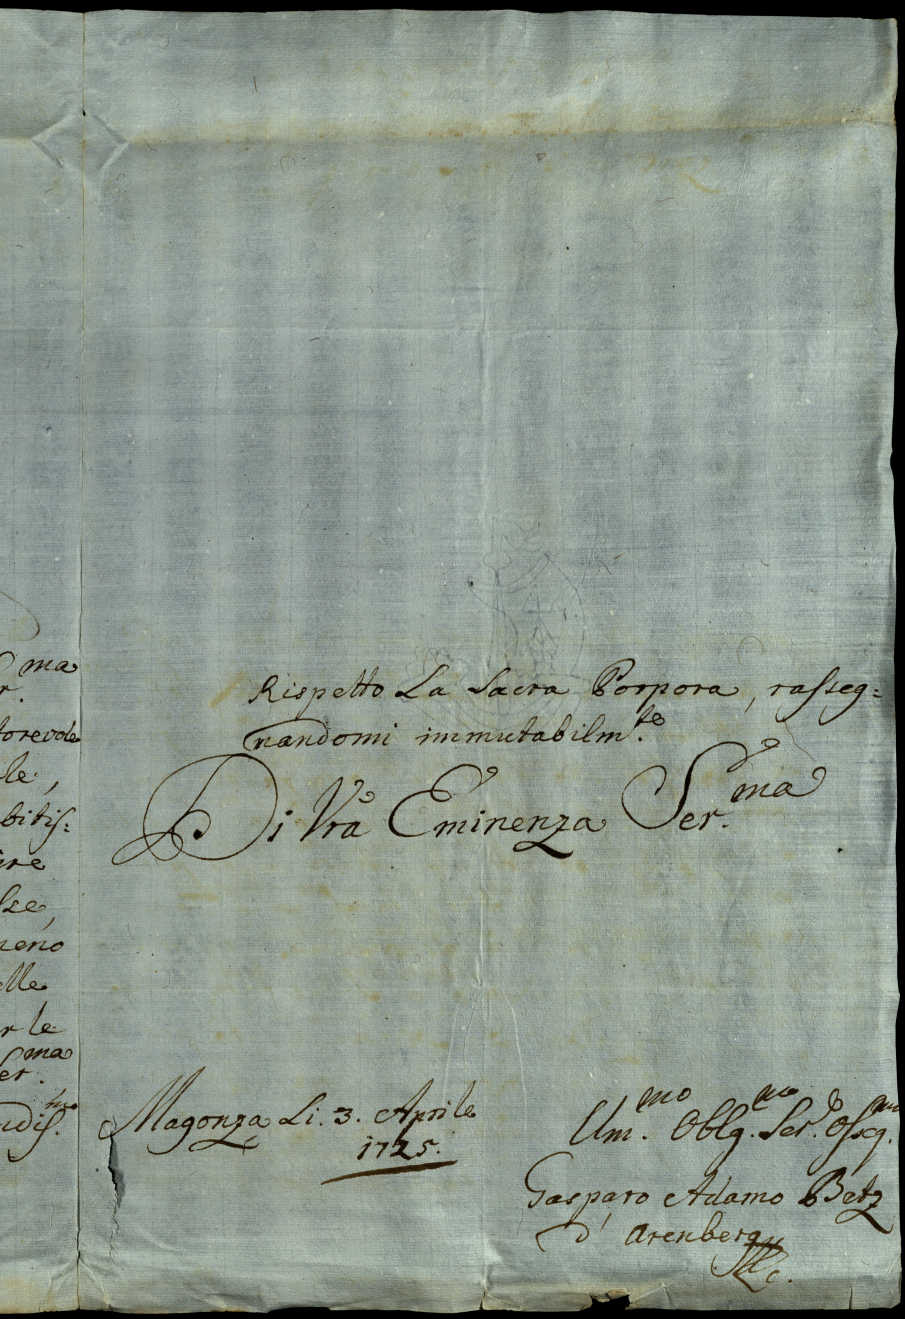 ma
r.
torevole
le,
bitis=
ire
lse,
meno
elle
r le
er.ma
ndis.mo
Rispetto La Sacra Porpora, rasseg=
nandomi immutabilm.te
Di Vrã Eminenza Ser.ma
Magonza Li. 3. Aprile
1725.
Um.mo Oblg.mo Ser.e Osseq.mo
Gasparo Adamo Betz
d' Arenberg